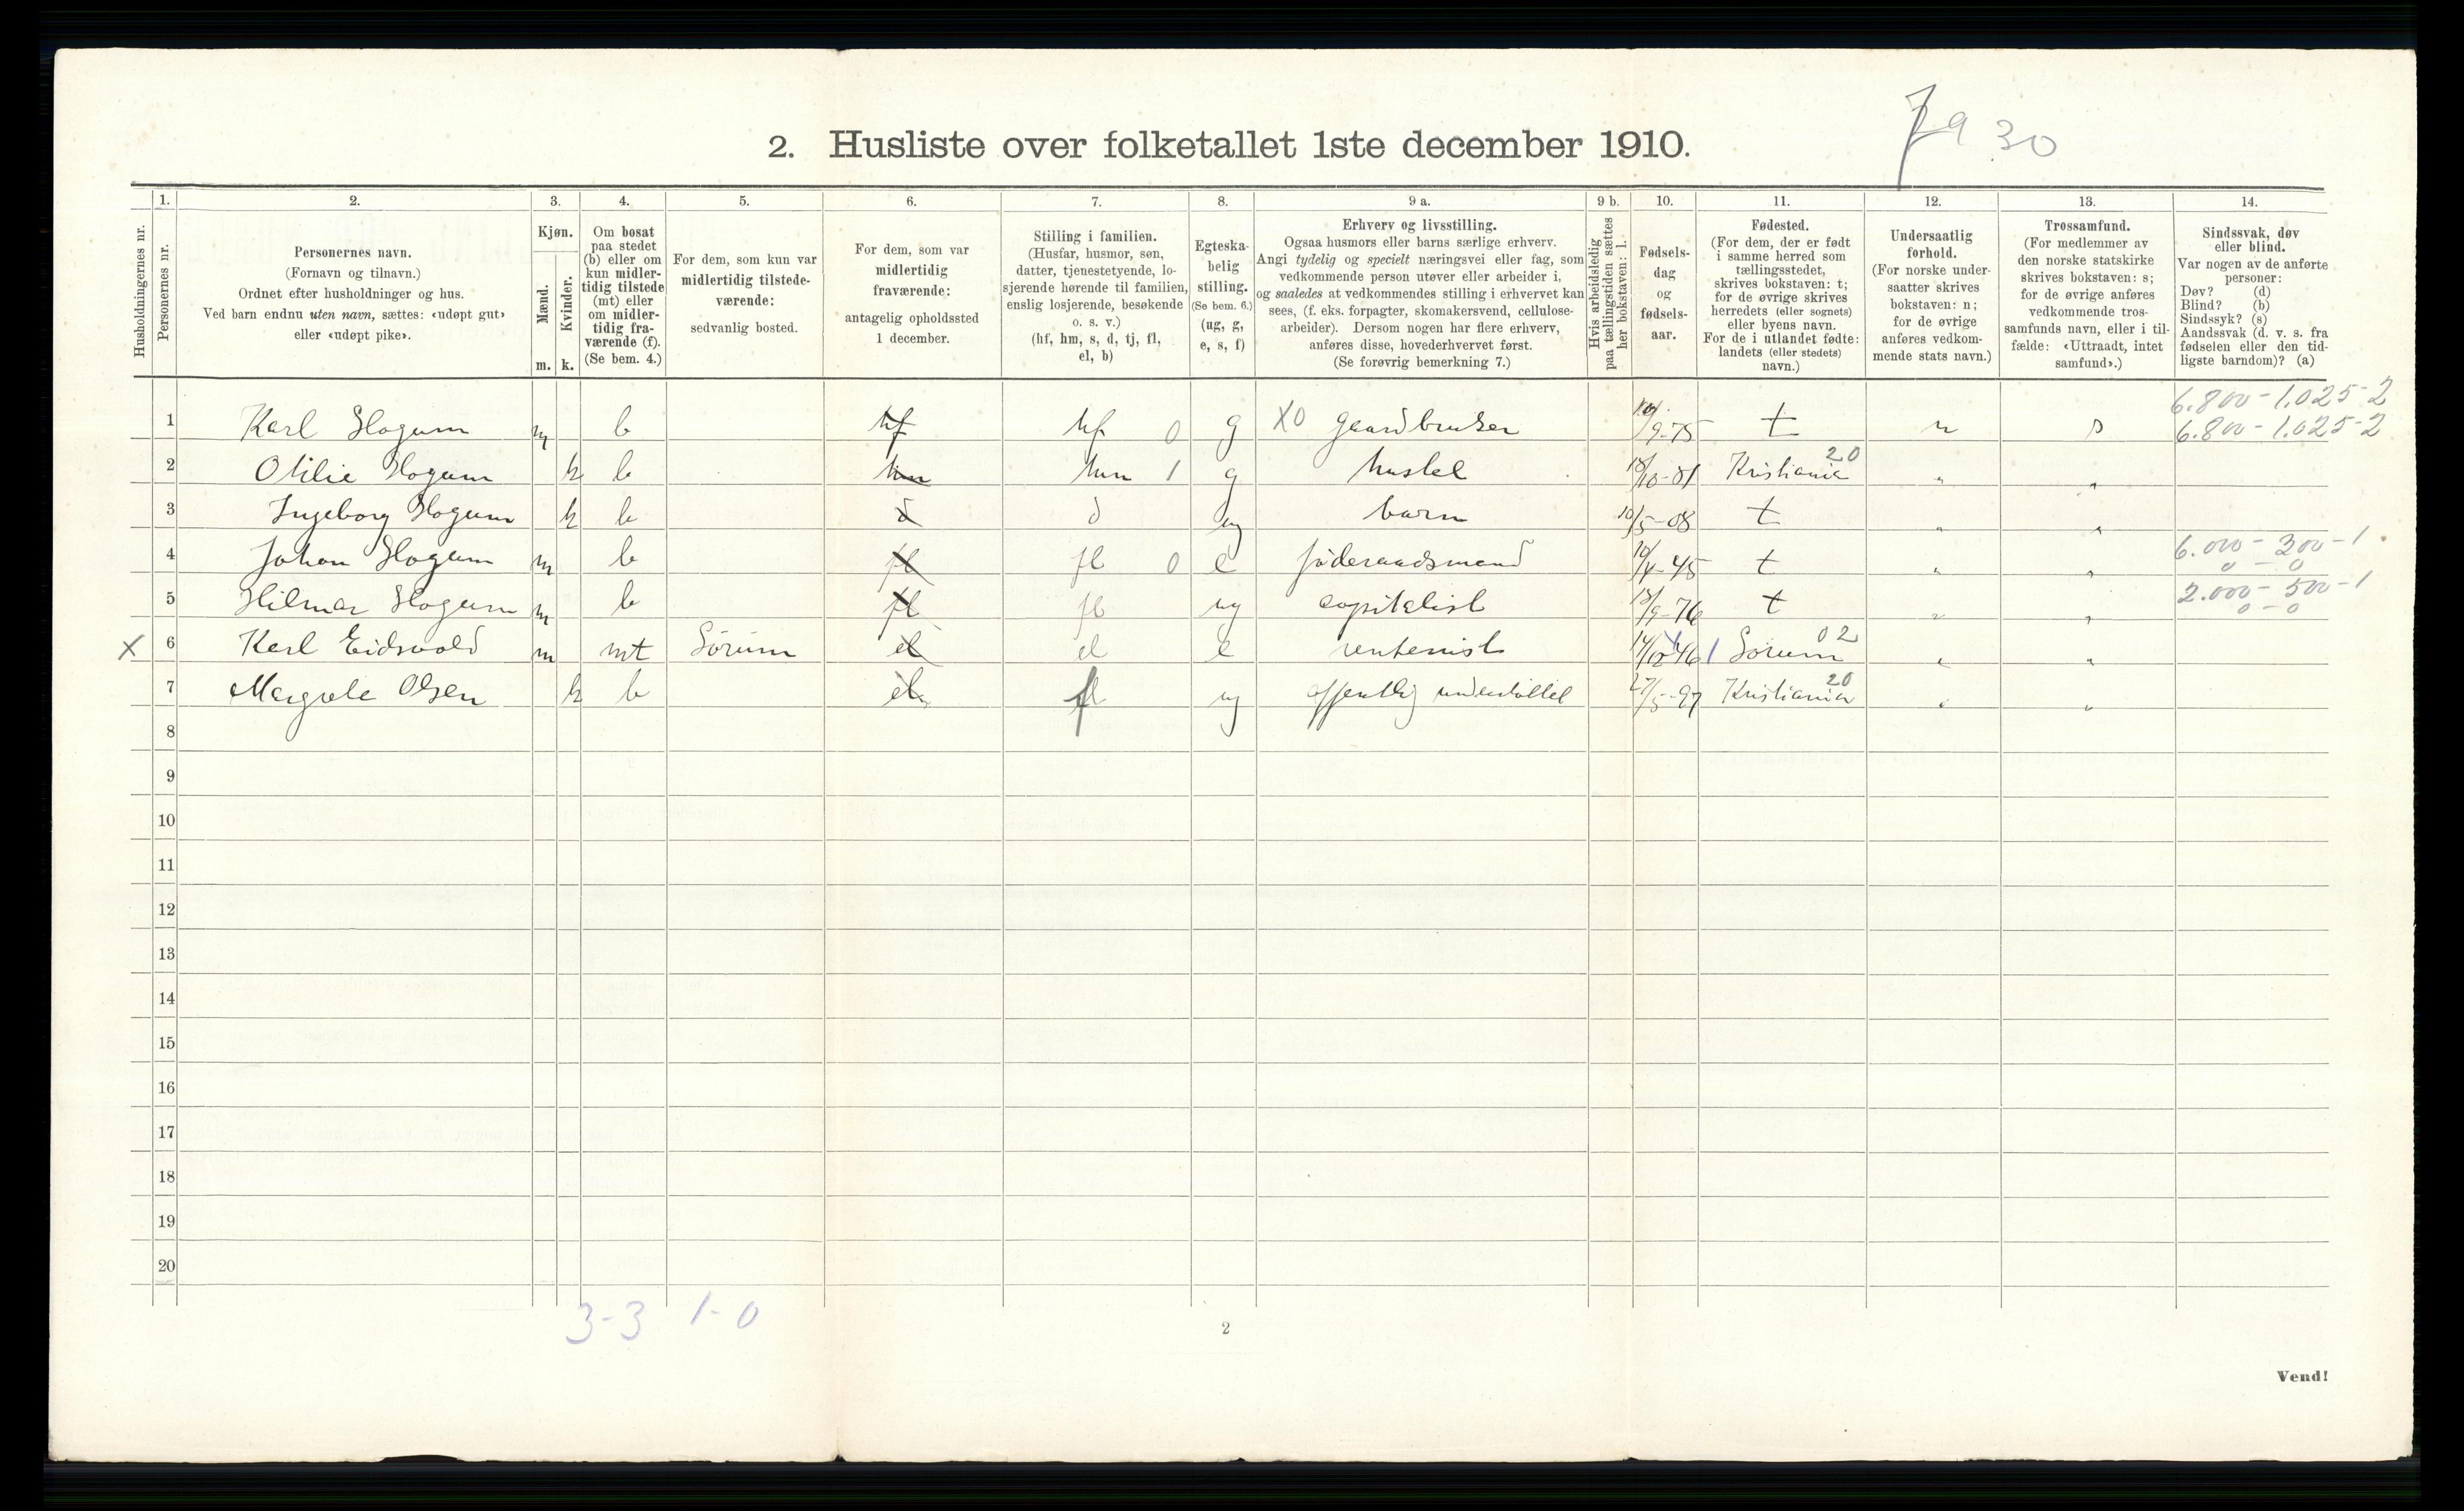 2. Husliste over folketallet 1ste december 1910.
30
Husholdningernes nr.
1. Personernes nr.
2. Personernes navn. (Fornavn og tilnavn.) Ordnet efter husholdninger og hus. Ved barn endnu uten navn, sættes: «udøpt gut» eller «udøpt pike».
3. Kjøn. Mænd. m. Kvinder. k.
4. Om bosat paa stedet (b) eller om kun midlertidig tilstede (mt) eller om midlertidig fraværende (f). (Se bem. 4.)
5. For dem, som kun var midlertidig tilstedeværende: sedvanlig bosted.
6. For dem, som var midlertidig fraværende: antagelig opholdssted 1 december.
7. Stilling i familien. (Husfar, husmor, søn, datter, tjenestetyende, losjerende hørende til familien, enslig losjerende, besøkende o. s. v.) (hf, hm, s, d, tj, fl, el, b)
8. Egteskabelig stilling. (Se bem. 6.) (ug, g, e, s, f)
9 a. Erhverv og livsstilling. Ogsaa husmors eller barns særlige erhverv. Angi tydelig og specielt næringsvei eller fag, som vedkommende person utøver eller arbeider i, og saaledes at vedkommendes stilling i erhvervet kan sees, (f. eks. forpagter, skomakersvend, cellulosearbeider). Dersom nogen har flere erhverv, anføres disse, hovederhvervet først. (Se forøvrig bemerkning 7.)
9 b. Hvis arbeidsledig paa tællingstiden sættes her bokstaven: l.
10. Fødselsdag og fødselsaar.
11. Fødested. (For dem, der er født i samme herred som tællingsstedet, skrives bokstaven: t; for de øvrige skrives herredets (eller sognets) eller byens navn. For de i utlandet fødte: landets (eller stedets) navn.)
12. Undersaatlig forhold. (For norske undersaatter skrives bokstaven: n; for de øvrige anføres vedkommende stats navn.)
13. Trossamfund. (For medlemmer av den norske statskirke skrives bokstaven: s; for de øvrige anføres vedkommende trossamfunds navn, eller i tilfælde: «Uttraadt, intet samfund».)
14. Sindssvak, døv eller blind. Var nogen av de anførte personer: Døv? (d) Blind? (b) Sindssyk? (s) Aandssvak (d. v. s. fra fødselen eller den tidligste barndom)? (a)
6.800 - 1.025 - 2
1 Karl Hogum m b hf hf 0 g X0 gaardbruker 9-75 t n s 6.800 - 1.025 - 2
2 Otilie Hogum k b hm hm 1 g hustel 18/10-81 Kristiania 20 " "
3 Ingeborg Hogum k b d d ug barn 10/5-08 t " "
6.000 - 300 - 1
4 Johan Hogum m b fl fl 0 e föderaadsmand 10/4-45 t " " 0 - 0
2.000 - 500 - 1
5 Hilmar Hogum m b fl fl ug capitalist 18/9-76 t " " 0 - 0
X 6 Karl Eidsvold m mt Sörum el el e rentenist 14/12 46 1 Sörum 02 " "
7 Margrete Olsen k b el fl ug offentlig understöttet 27/5-97 Kristiania 20 " "
8
9
10
11
12
13
14
15
16
17
18
19
20
3-3 1-0
2
Vend!